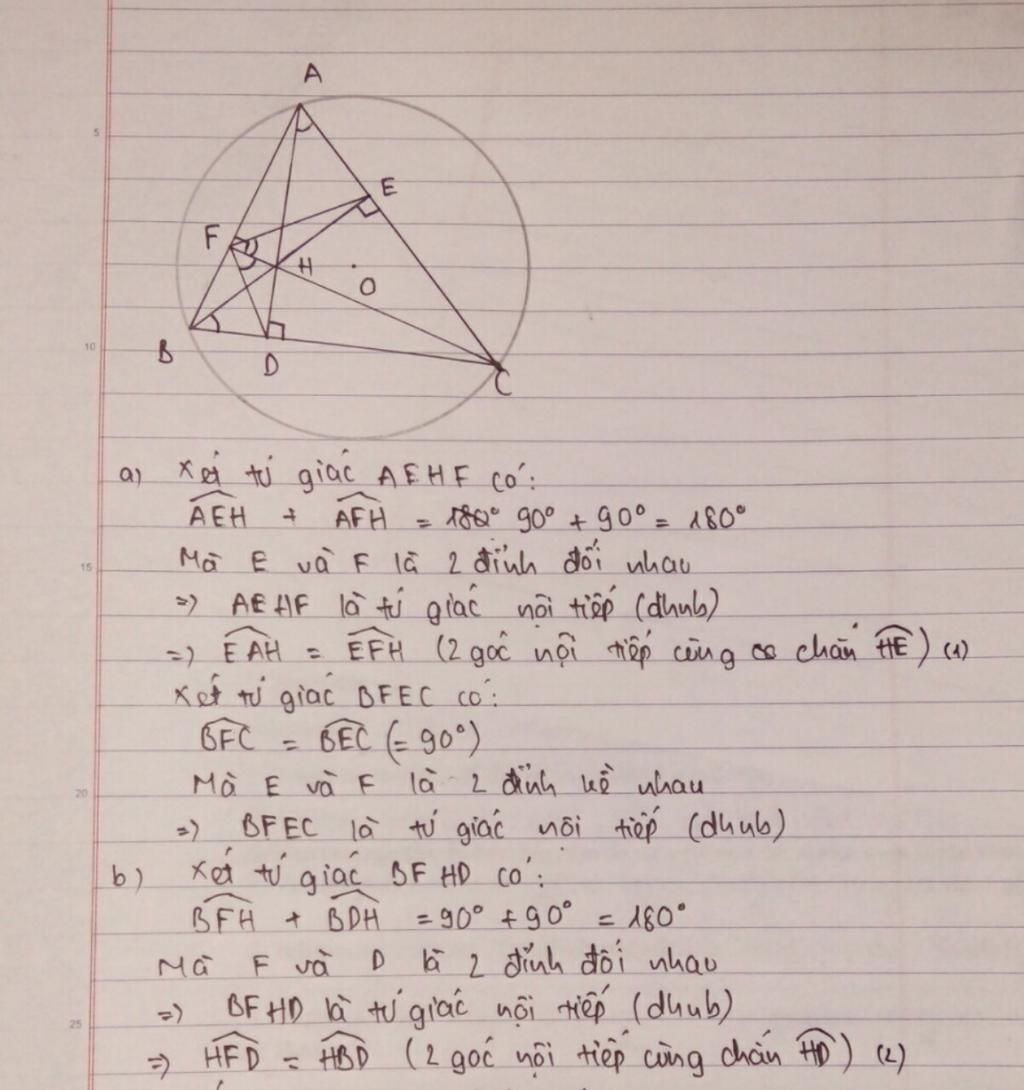 A
5
E
F
H
O
B
10
D
C
a) Xét tứ giác AEHF có:
$\widehat{AEH}$ + $\widehat{AFH}$ = 180° 90° + 90° = 180°
Mà E và F là 2 đỉnh đối nhau
15
=> AEHF là tứ giác nội tiếp (dhnb)
=> $\widehat{EAH}$ = $\widehat{EFH}$ (2 góc nội tiếp cùng chắn $\widehat{HE}$) (1)
Xét tứ giác BFEC có:
$\widehat{BFC}$ = $\widehat{BEC}$ (= 90°)
Mà E và F là 2 đỉnh kề nhau
20
=> BFEC là tứ giác nội tiếp (dhnb)
b) Xét tứ giác BFHD có:
$\widehat{BFH}$ + $\widehat{BDH}$ = 90° + 90° = 180°
Mà F và D là 2 đỉnh đối nhau
=> BFHD là tứ giác nội tiếp (dhnb)
25
=> $\widehat{HFD}$ = $\widehat{HBD}$ (2 góc nội tiếp cùng chắn $\widehat{HD}$) (2)